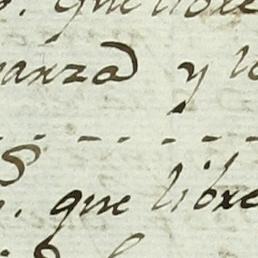 . que libre
anza y lo
S. que libre